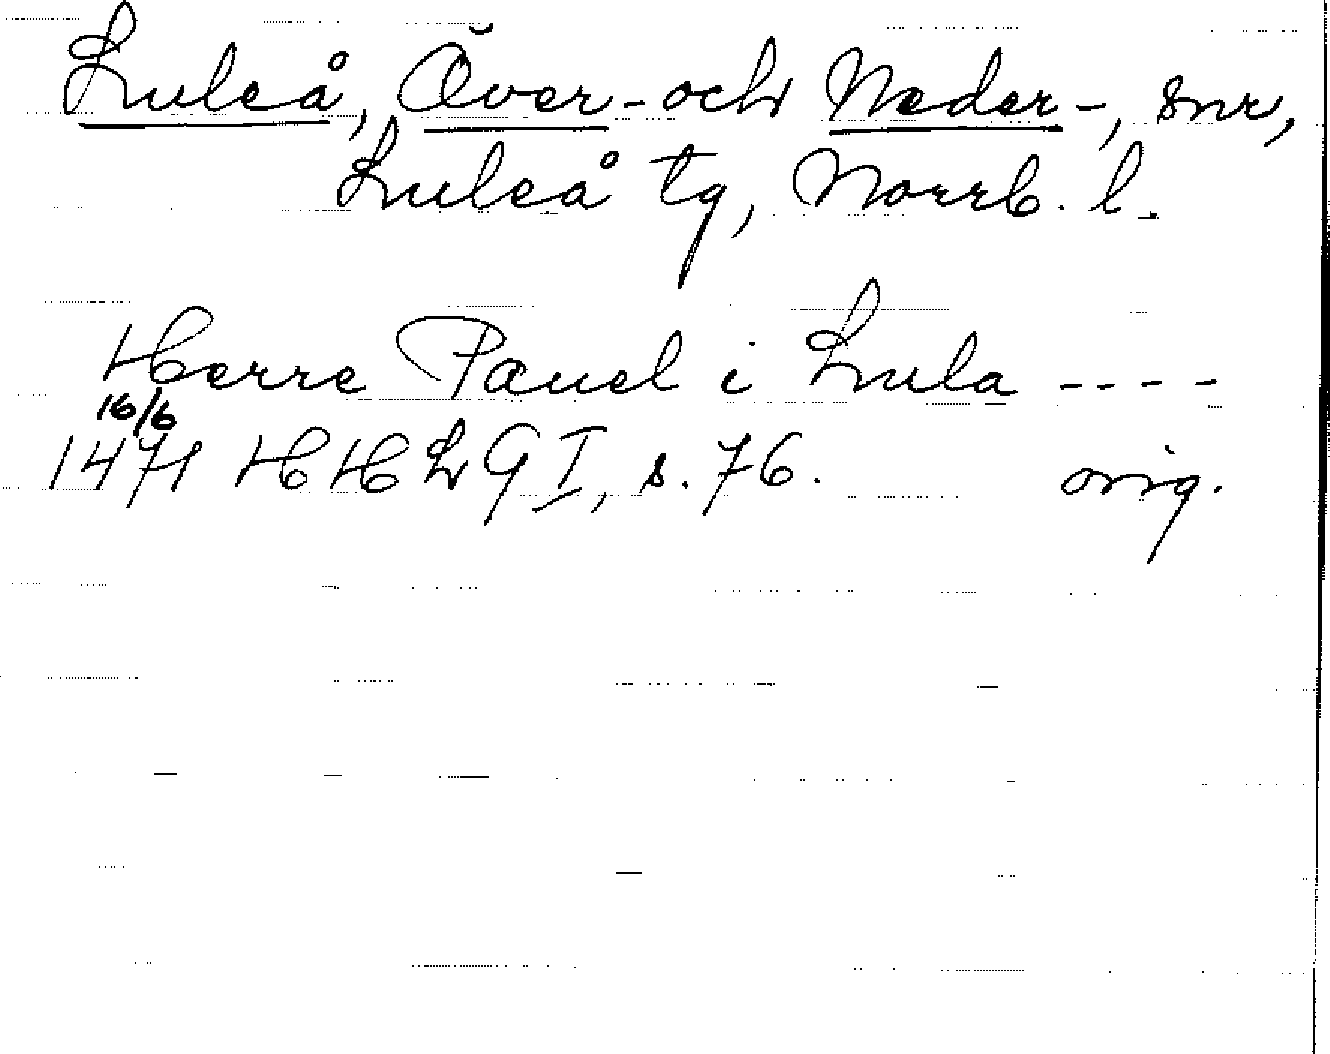 Luleå, Över- och Neder-, snr,
Luleå tg, Norrb. l.
Herre Pauel i Lula ----
16/6
1471 HHLG I, s. 76. orig.